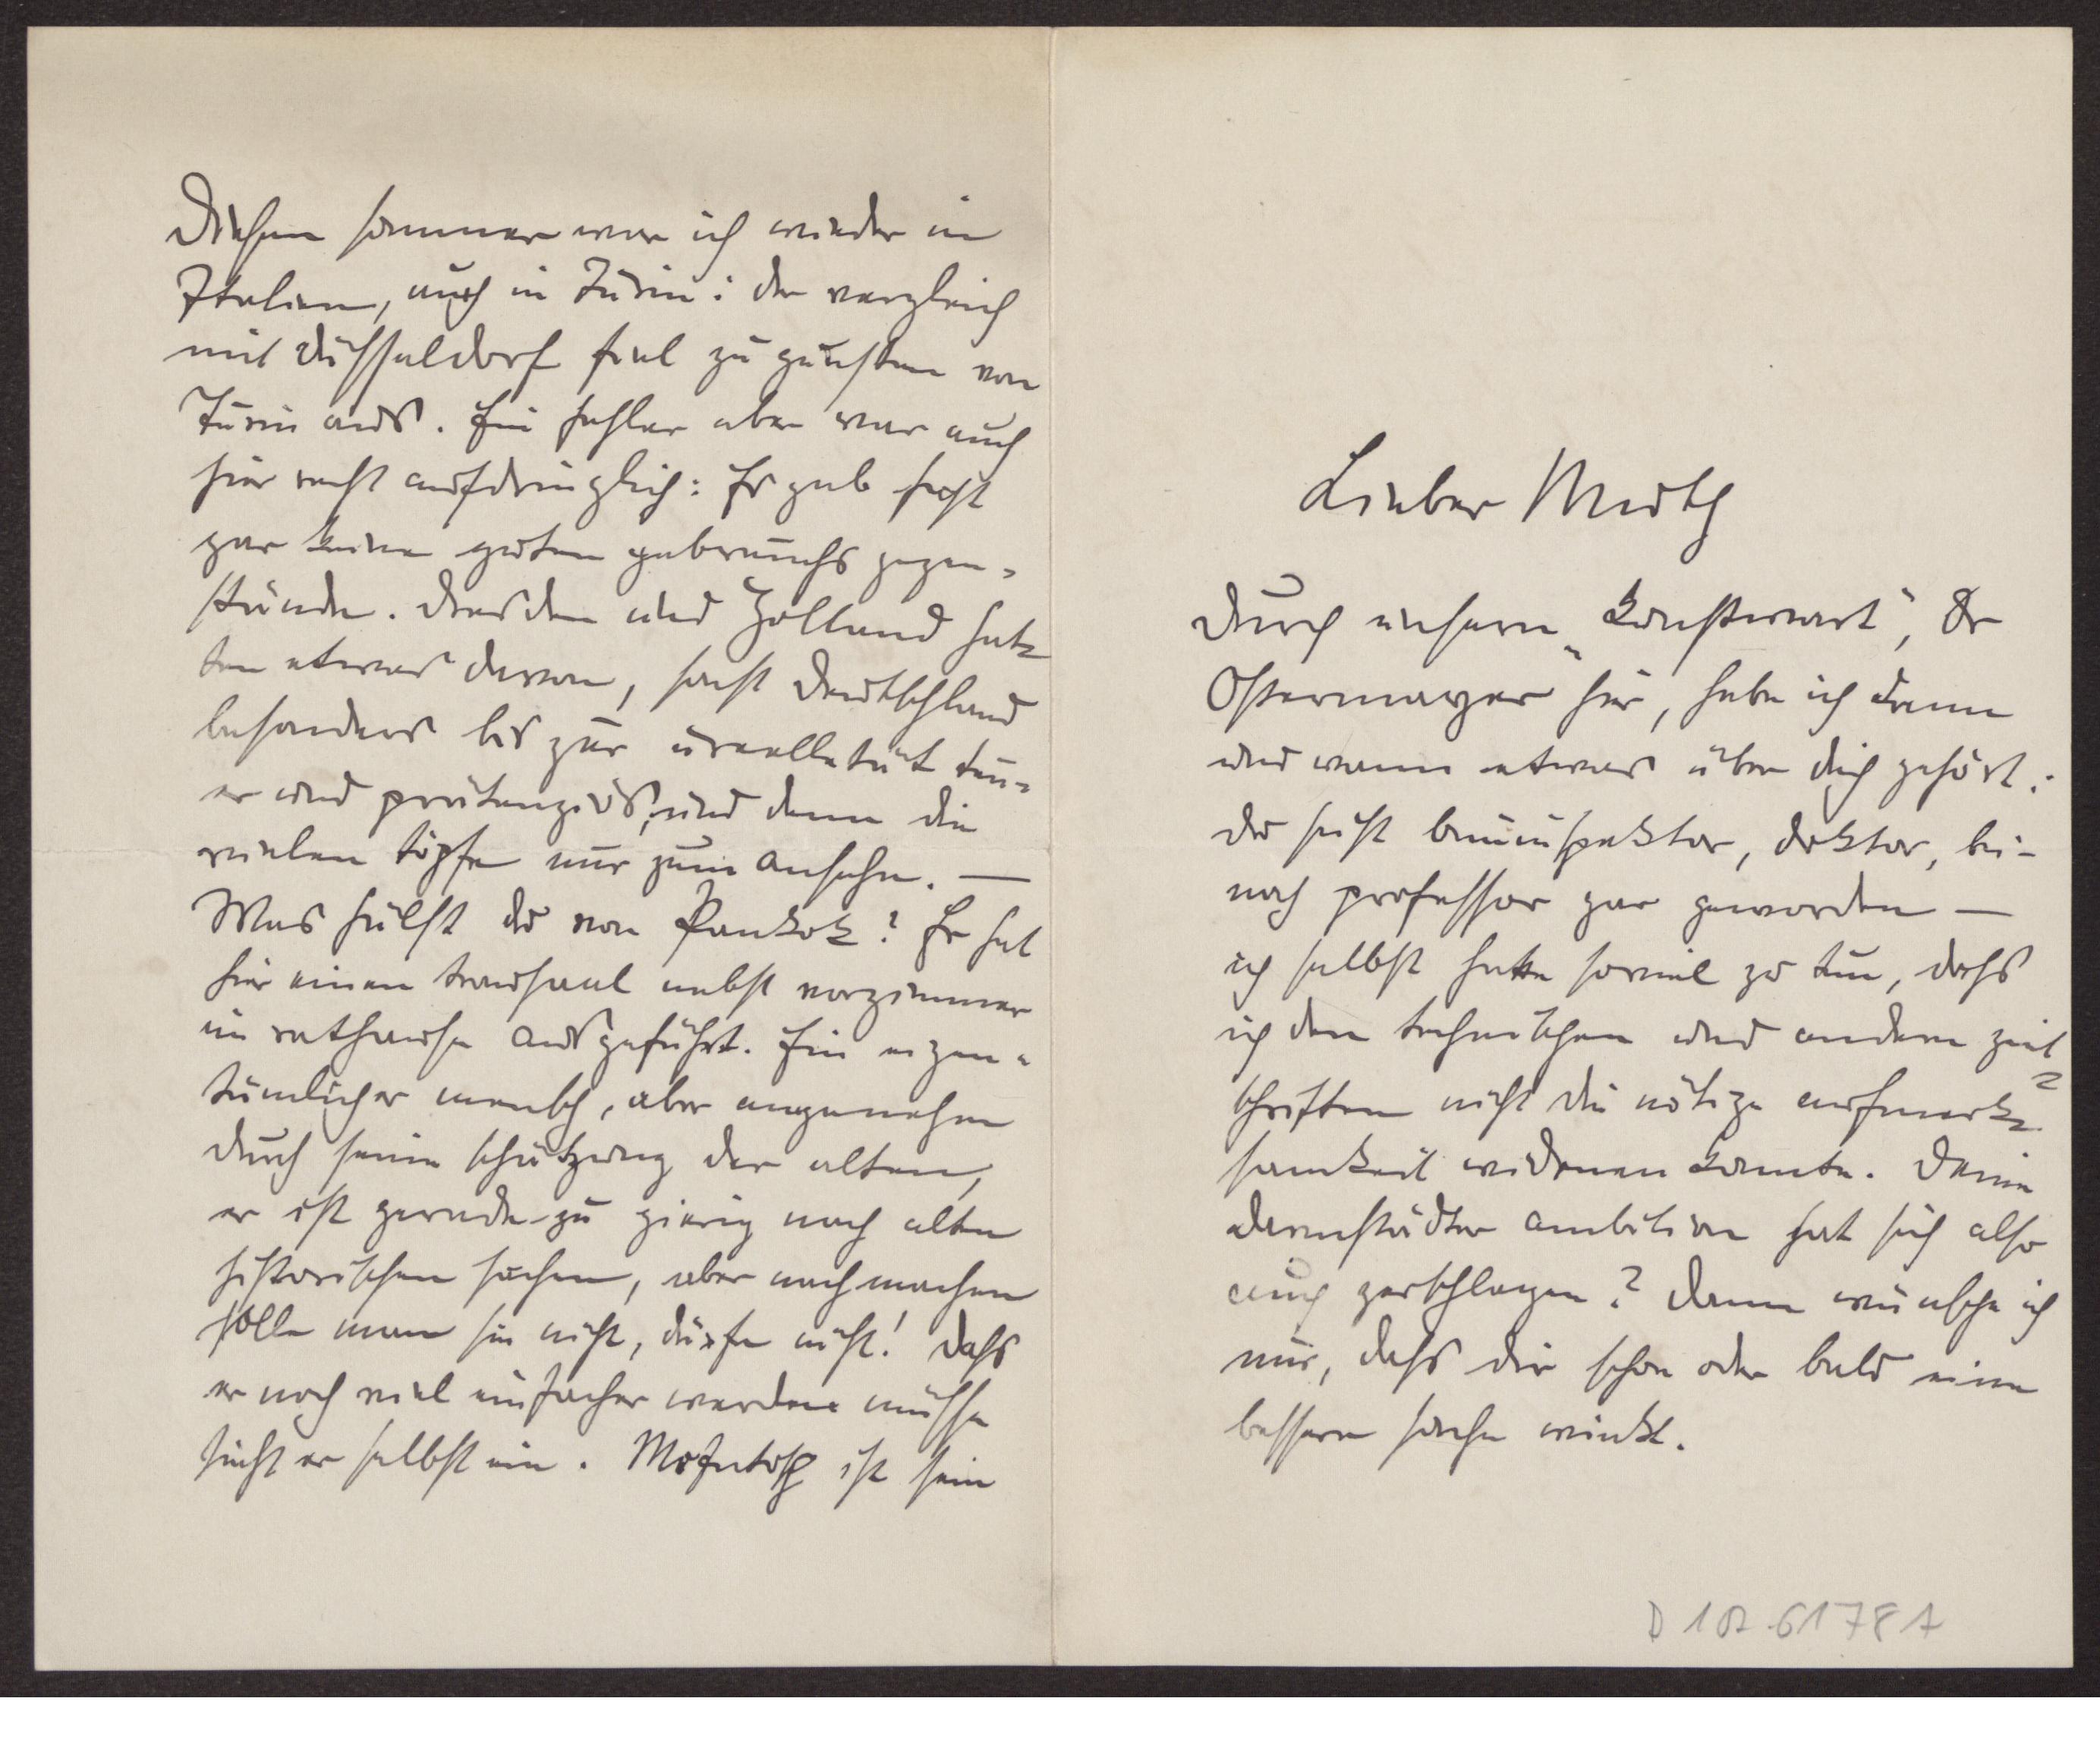 Diesen sommer war ich wieder in
Italien, auch in Turin: der vergleich
mit düsseldorf fiel zu gunsten von
Turin aus. Ein fehler aber war auch
hier recht aufdringlich: Es gab fast
gar keine guten gebrauchs gegen-
stände. Dresden und Holland hat-
ten etwas davon, sonst Deutschland
besonders bis zur urealletät teu-
er und prätenziös, und dann die
vielen töpfe nur zum ansehn. —
Was hälst du von Pankok? Er hat
hier einen trausaal nebst vorzimmer
im rathause ausgeführt. Ein eigen-
tümlicher mensch, aber angenehm
durch seine schätzung der alten,
er ist gerade-zu gierig nach alten
historischen sachen, aber nachmachen
solle man sie nicht, dürfe nicht! Dass
er noch viel einfacher werden müsse
sieht er selbst ein. ist sein
Lieber Muth
Durch unsern „Kunstwart", Dr
Ostermayer hier, habe ich dann
und wann etwas über dich gehört:
du seist bauinspektor, doktor, bei-
nah professor gar geworden —
ich selbst hatte soviel zu tun, dass
ich den technischen und andern zeit-
schriften nicht die nötige aufmerk-
samkeit widmen konnte. Deine
darmstädter ambition hat sich also
auch zerschlagen? Dann wünsche ich
nur, dass dir schon oder bald eine
bessere sache winkt.
D 102.6178 A